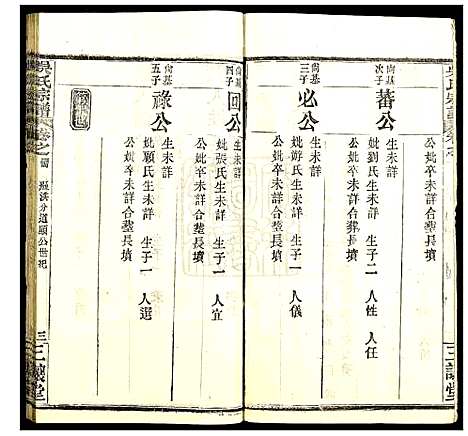 尙基
次子
蕃公
生未詳
妣劉氏生未詳 生子二 人性 人任
公妣卒未詳合葬長墳
尙基
三子
必公
生未詳
妣鄭氏生未詳 生子一 人儀
公妣卒未詳合塟長墳
三讓堂
尙基
四子
回公
生未詳
妣張氏生未詳 生子一 人宜
公妣卒未詳合塟長墳
尙基
五子
祿公
生未詳
妣顧氏生未詳 生子一 人選
公妣卒未詳合塟長墳
吳氏宗譜
卷之
分道頤公世紀
三
三讓堂